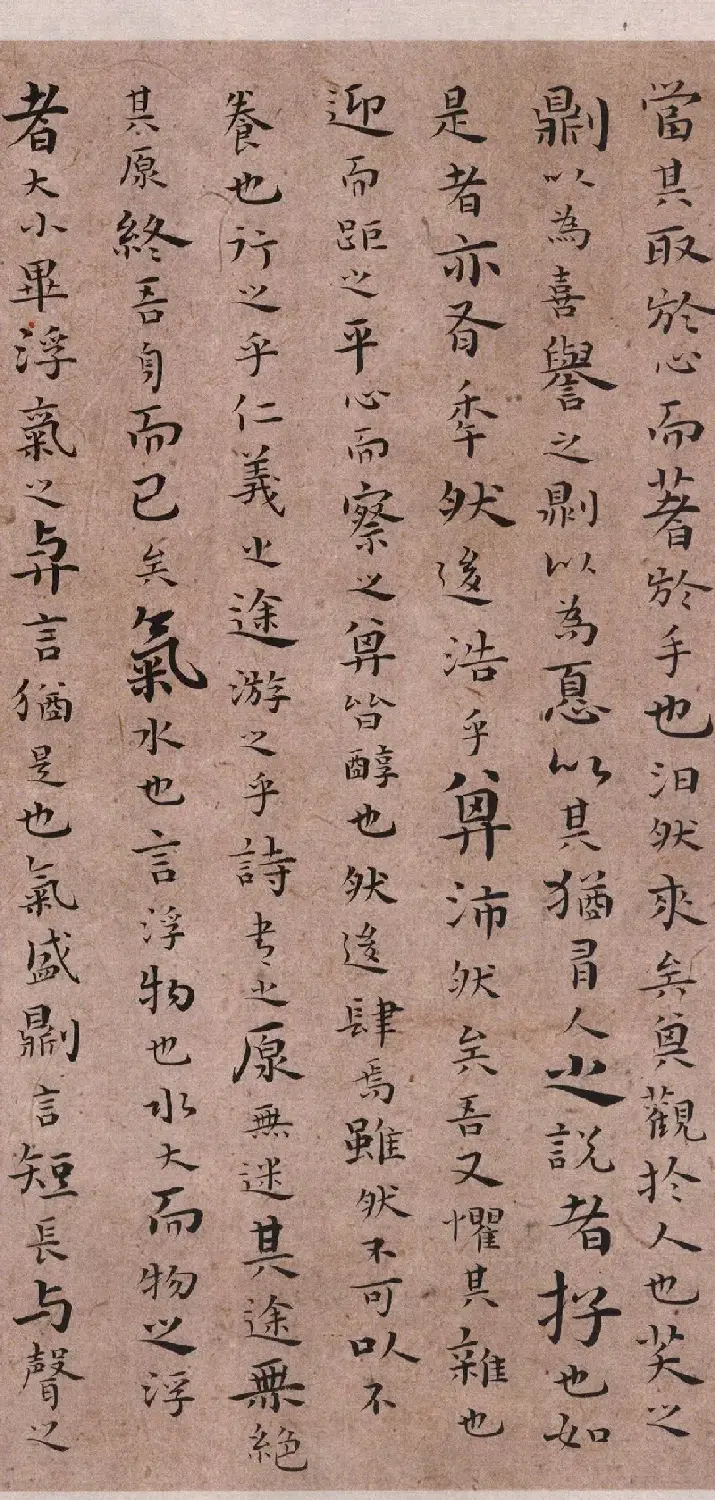 當其取於心而著於手也汩然來矣其觀於人也笑之
則以為喜譽之則以為憂以其猶有人之說者存也如
是者亦有秊然後浩乎其沛然矣吾又懼其雜也
迎而距之平心而察之其皆醇也然後肆焉雖然不可以不
養也行之乎仁義之途游之乎詩書之原無迷其途無絕
其原終吾身而已矣氣水也言浮物也水大而物之浮
者大小畢浮氣之與言猶是也氣盛則言短長與聲之